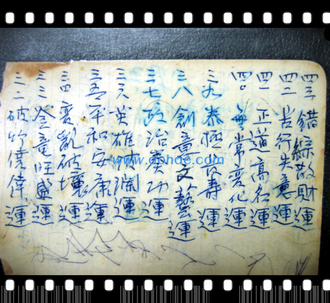 四三 錯綜散財運
四二 苦行失意運
四一 正道高名運
四〇 無常變化運
三九 泰極長壽運
三八 創意文藝運
三七 政治功運
三六 英雄波瀾運
三五 平和安康運
三四 變亂破壞運
三三 登竜旺盛運
三二 破竹僥倖運